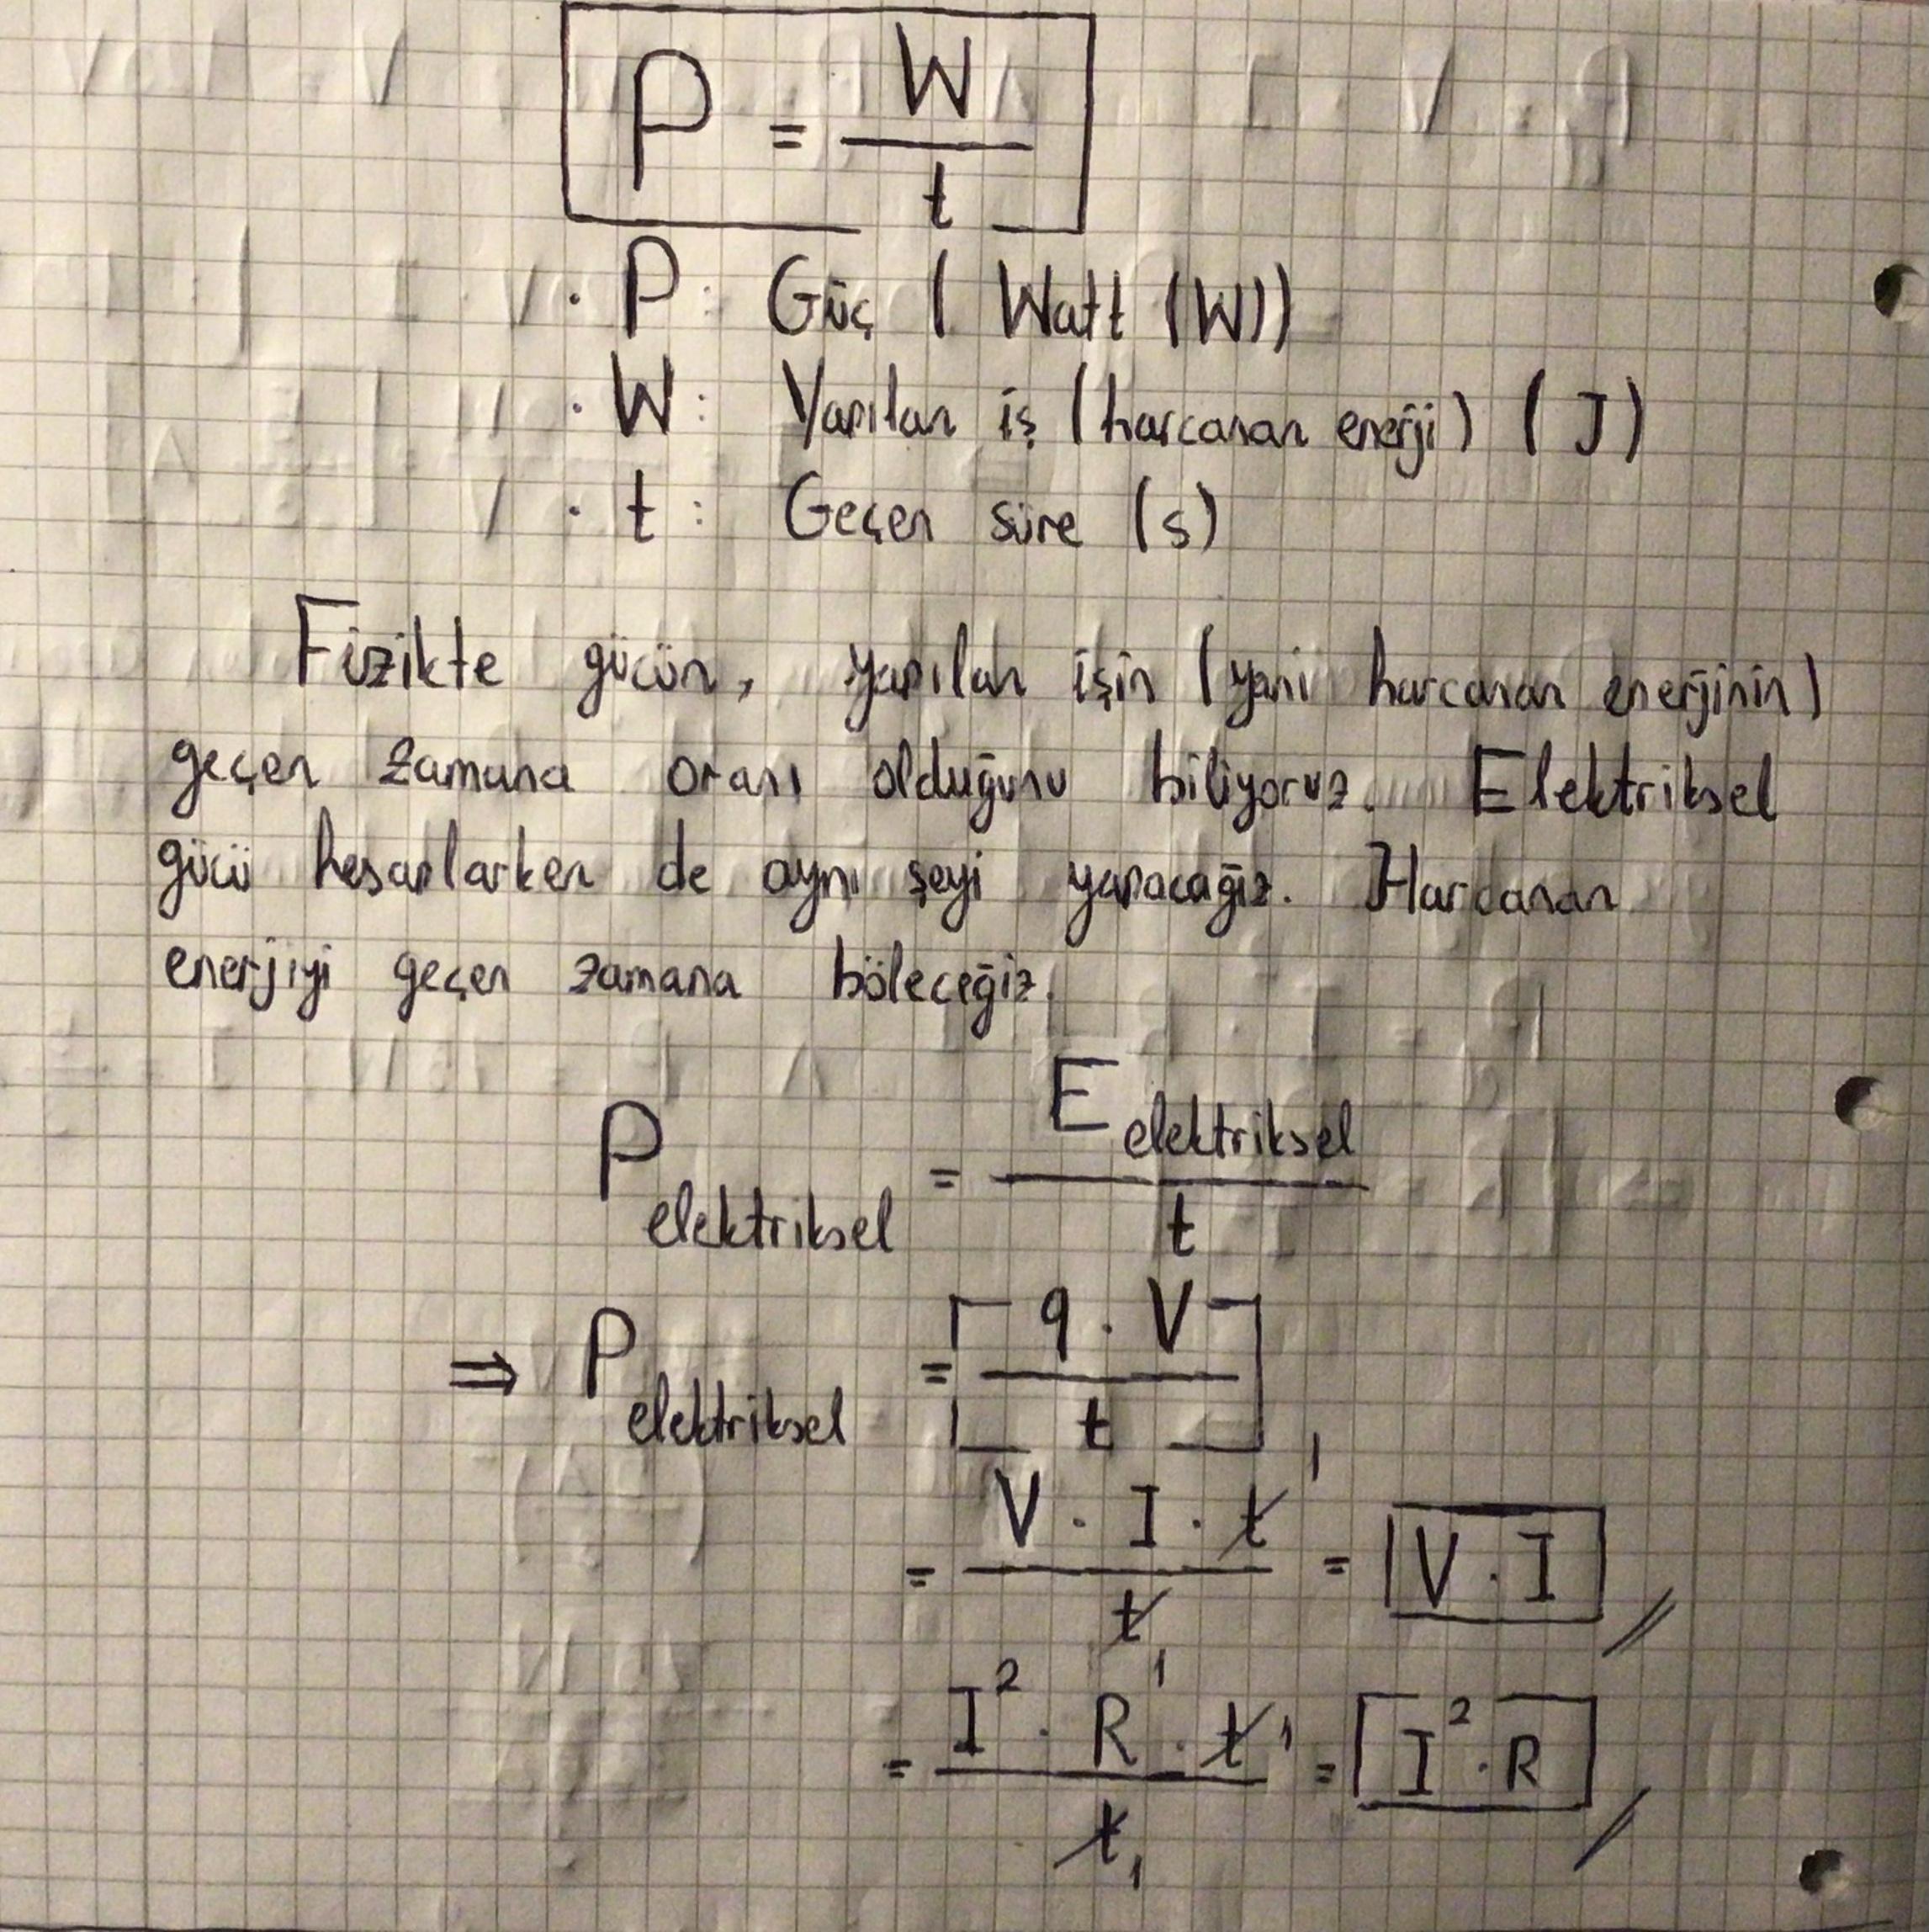 P = W / t
· P : Güç ( Watt (W))
· W : Yapılan iş (harcanan enerji) ( J )
· t : Geçen süre (s)
Fizikte gücün, yapılan işin (yani harcanan enerjinin)
geçen zamana oranı olduğunu biliyoruz. Elektriksel
gücü hesaplarken de aynı şeyi yapacağız. Harcanan
enerjiyi geçen zamana böleceğiz.
P elektriksel = E elektriksel / t
⇒ P elektriksel = q . V / t
= V . I . t / t = V . I
= I² . R . t / t = I² . R